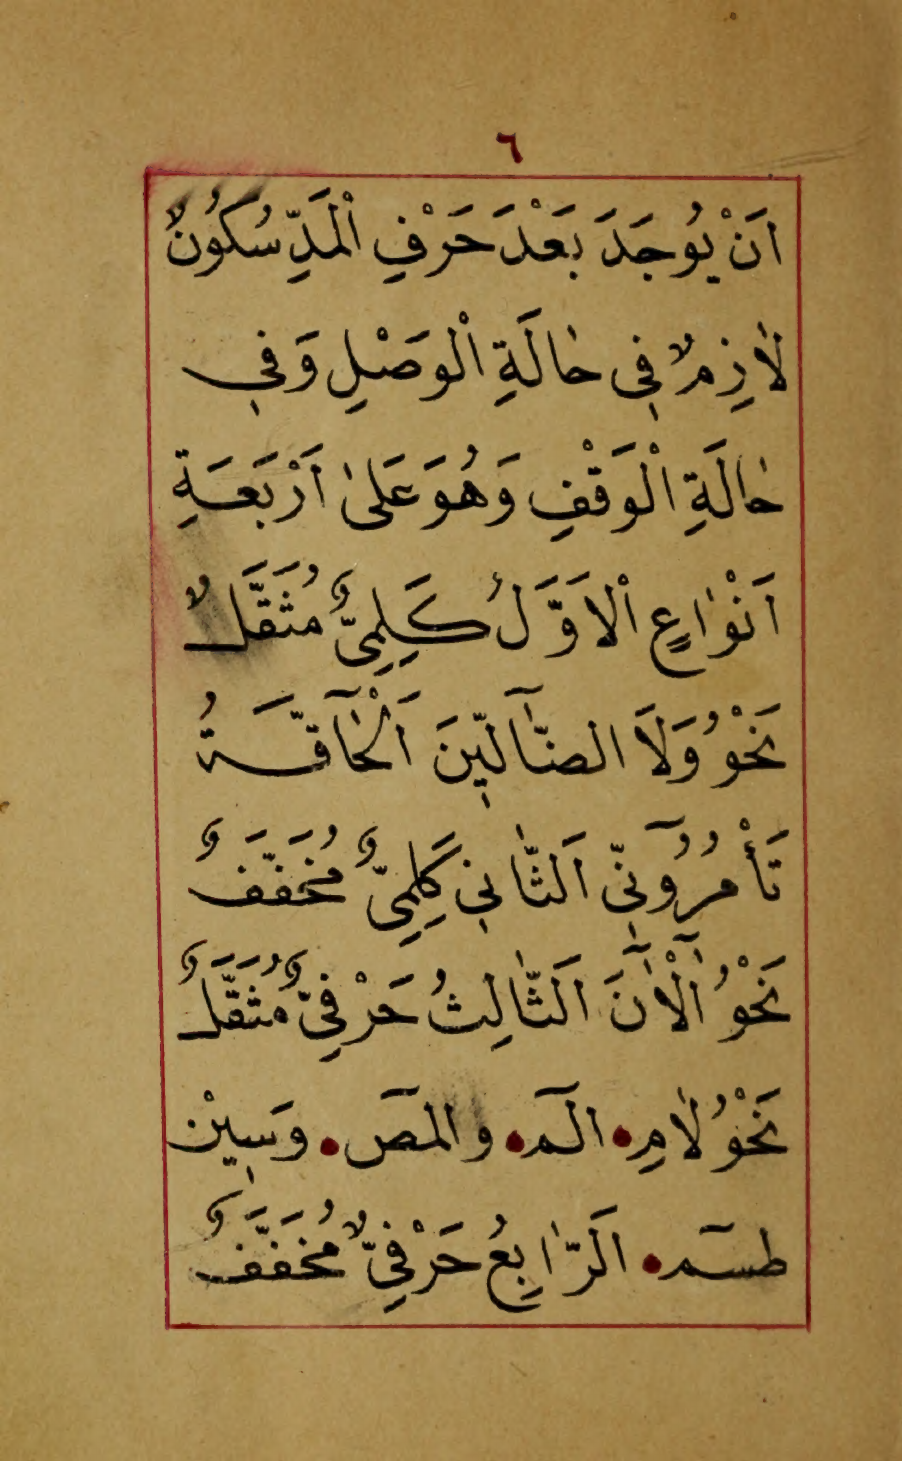 ٦
اَنْ يُوجَدَ بَعْدَ حَرْفِ الْمَدِّ سُكُونٌ
لٰازِمٌ فِى حٰالَةِ الْوَصْلِ وَفِى
حٰالَةِ الْوَقْفِ وَهُوَ عَلىٰ اَرْبَعَةِ
اَنْوٰاعٍ اْلاَوَّلُ كَلِمِىٌّ مُثَقَّلٌ
نَحْوُ وَلَا الضّٰٓالّ۪ينَ اَلْحٰٓاقَّةُ
تَأْمُرُٓونّ۪ى اَلثّٰان۪ى كَلِمِىٌّ مُخَفَّفٌ
نَحْوُ آٰلْاٰنَ اَلثّٰالِثُ حَرْفِىٌّ مُثَقَّلٌ
نَحْوُ لٰامِ • الٓمٓ • والمٓصٓ • وَس۪ينْ
طسٓمٓ • اَلرّٰابِعُ حَرْفِىٌّ مُخَفَّفٌ